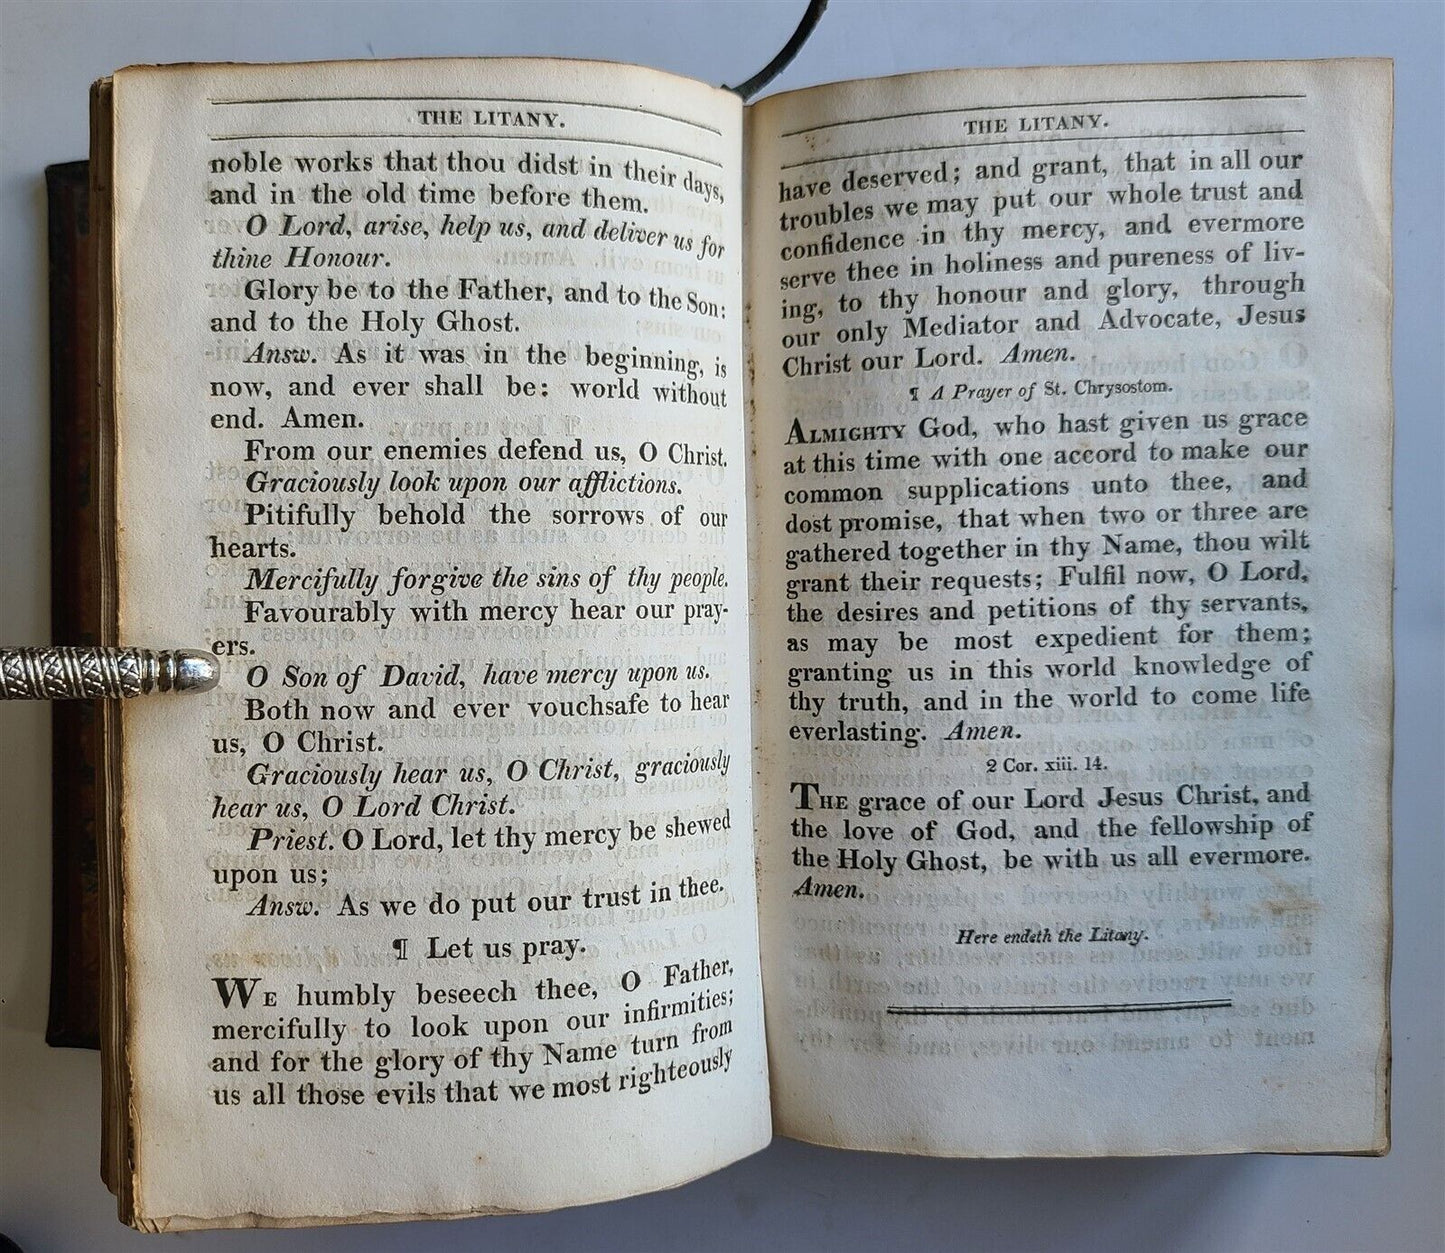 THE LITANY.
noble works that thou didst in their days,
and in the old time before them.
O Lord, arise, help us, and deliver us for
thine Honour.
Glory be to the Father, and to the Son:
and to the Holy Ghost.
Answ. As it was in the beginning, is
now, and ever shall be: world without
end. Amen.
From our enemies defend us, O Christ.
Graciously look upon our afflictions.
Pitifully behold the sorrows of our
hearts.
Mercifully forgive the sins of thy people.
Favourably with mercy hear our pray-
ers.
O Son of David, have mercy upon us.
Both now and ever vouchsafe to hear
us, O Christ.
Graciously hear us, O Christ, graciously
hear us, O Lord Christ.
Priest. O Lord, let thy mercy be shewed
upon us;
Answ. As we do put our trust in thee.
¶ Let us pray.
WE humbly beseech thee, O Father,
mercifully to look upon our infirmities;
and for the glory of thy Name turn from
us all those evils that we most righteously
THE LITANY.
have deserved; and grant, that in all our
troubles we may put our whole trust and
confidence in thy mercy, and evermore
serve thee in holiness and pureness of liv-
ing, to thy honour and glory, through
our only Mediator and Advocate, Jesus
Christ our Lord. Amen.
¶ A Prayer of St. Chrysostom.
ALMIGHTY God, who hast given us grace
at this time with one accord to make our
common supplications unto thee, and
dost promise, that when two or three are
gathered together in thy Name, thou wilt
grant their requests; Fulfil now, O Lord,
the desires and petitions of thy servants,
as may be most expedient for them;
granting us in this world knowledge of
thy truth, and in the world to come life
everlasting. Amen.
2 Cor. xiii. 14.
THE grace of our Lord Jesus Christ, and
the love of God, and the fellowship of
the Holy Ghost, be with us all evermore.
Amen.
Here endeth the Litany.